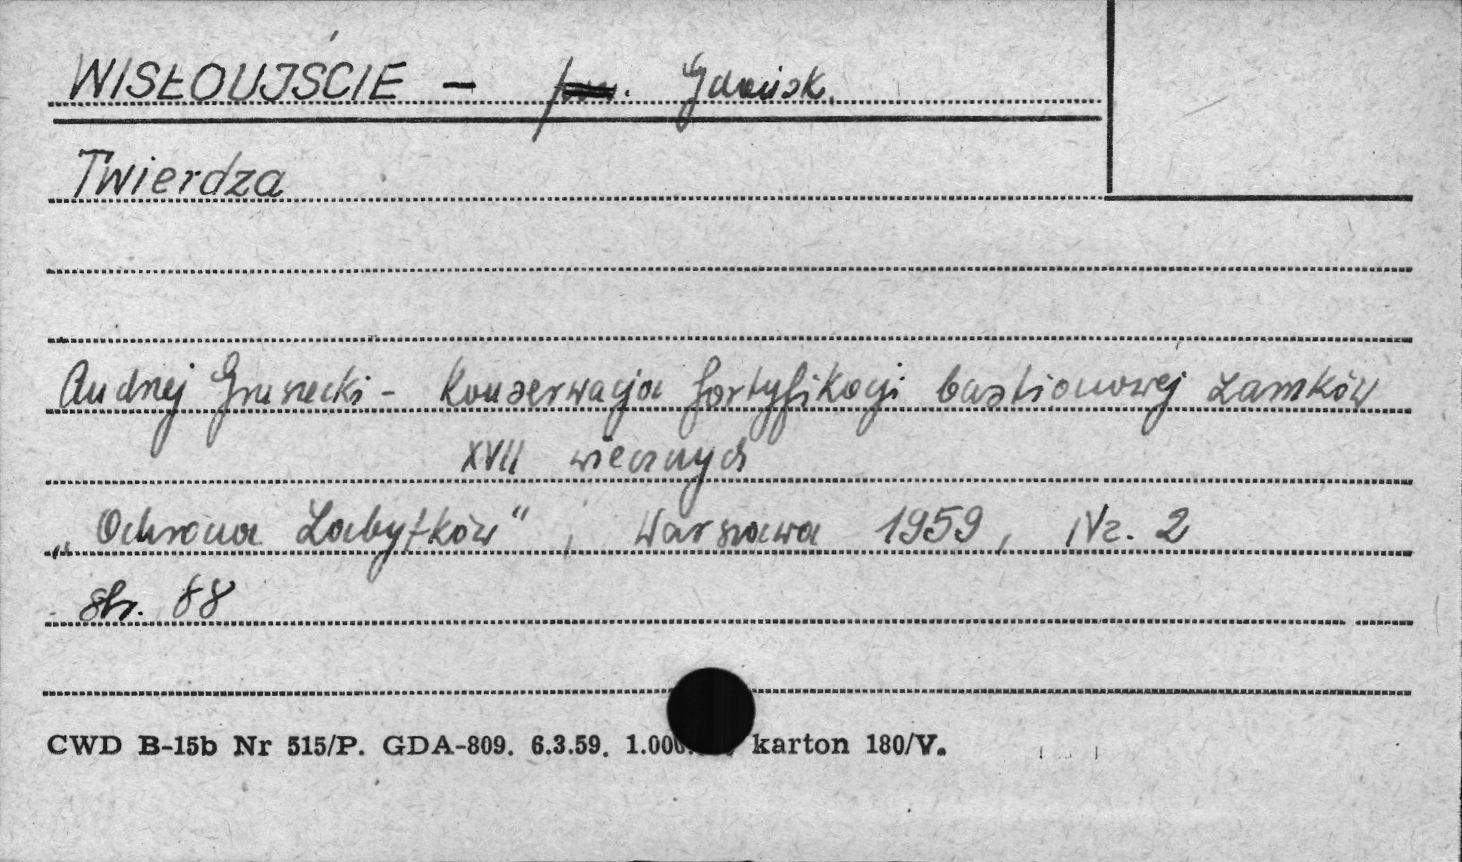 WISŁOUJŚCIE – pow. Gdańsk.
Twierdza
Andrzej Gruszecki – Konserwacja fortyfikacji bastionowej zamków
XVII wiecznych
„Ochrona Zabytków", Warszawa 1959, Nr. 2
str. 88
CWD B-15b Nr 515/P. GDA-809. 6.3.59. karton 180/V.